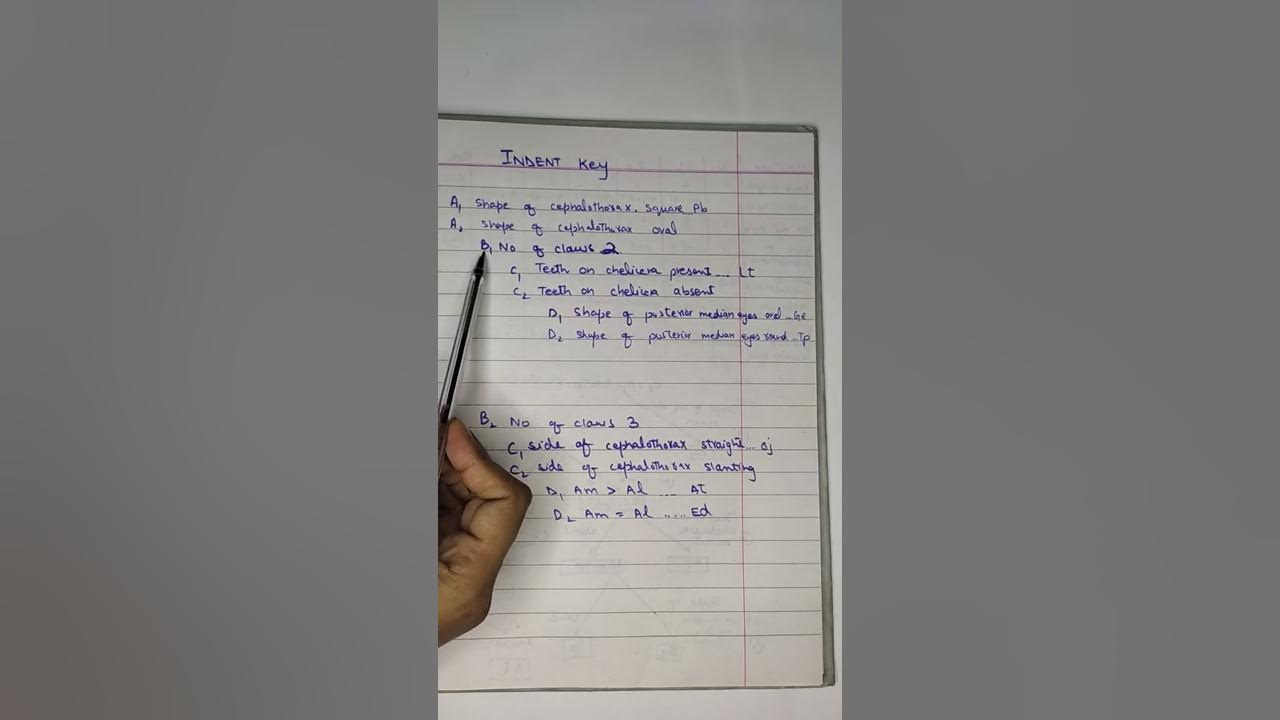 INDENT Key
A₁ Shape of cephalothorax. Square...Pb
A₂ Shape of cephalothorax oval
B₁ No of claws 2
C₁ Teeth on chelicera present.... Lt
C₂ Teeth on chelicera absent
D₁ Shape of posterior median eyes oval..Ge
D₂ Shape of posterior median eyes round..Tp
B₂ No of claws 3
C₁ side of cephalothorax straight...
C₂ side of cephalothorax slanting
D₁ Am > Al .... At
D₂ Am = Al ..... Ed